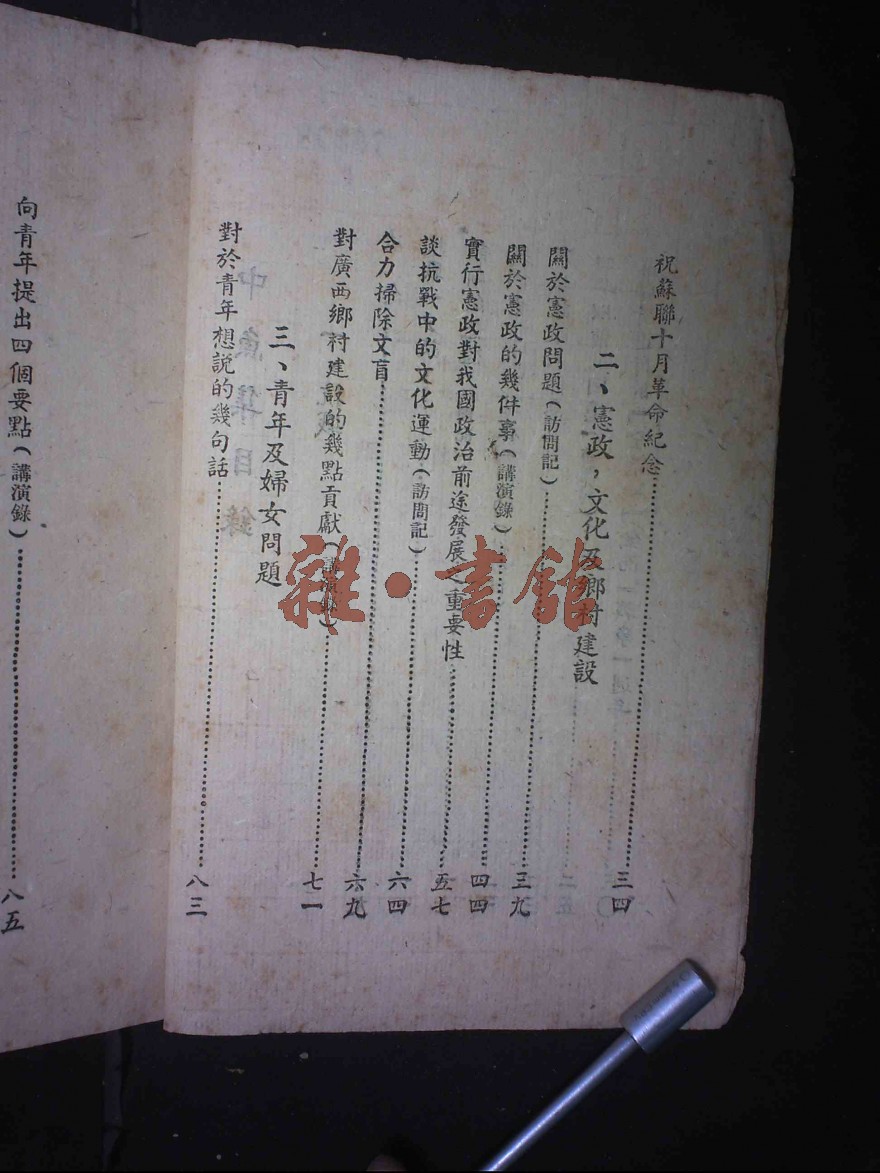 祝蘇聯十月革命紀念……三四
二、憲政，文化及鄉村建設
關於憲政問題（訪問記）……三九
關於憲政的幾件事（講演錄）……四四
實行憲政對我國政治前途發展之重要性……五七
談抗戰中的文化運動（訪問記）……六四
合力掃除文盲……六九
對廣西鄉村建設的幾點貢獻（講演錄）……七一
三、青年及婦女問題
對於青年想說的幾句話……八三
向青年提出四個要點（講演錄）……八五
雜·書館